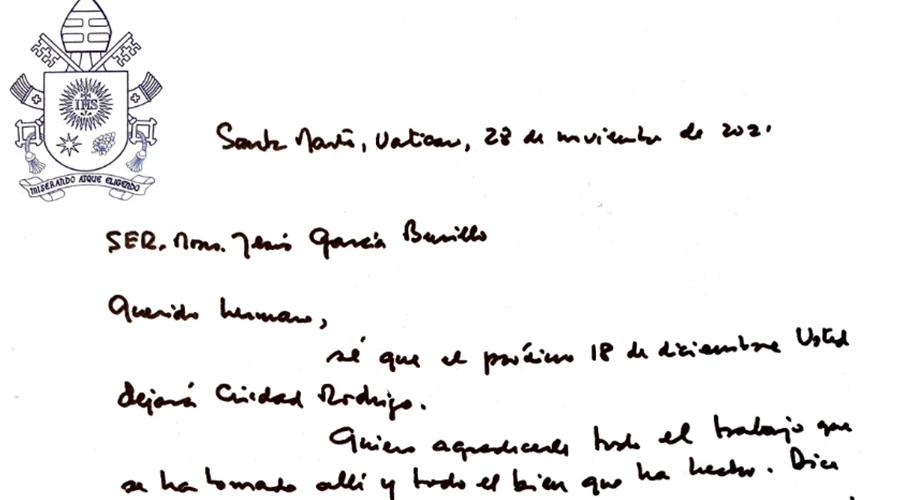 IHS
MISERANDO ATQUE ELIGENDO
Santa Marta, Vaticano, 28 de noviembre de 2021
SER. Mons. Jesús García Burillo
Querido hermano,
sé que el próximo 18 de diciembre Usted
dejará Ciudad Rodrigo.
Quiero agradecerle todo el trabajo que
se ha tomado allí y todo el bien que ha hecho. Dios